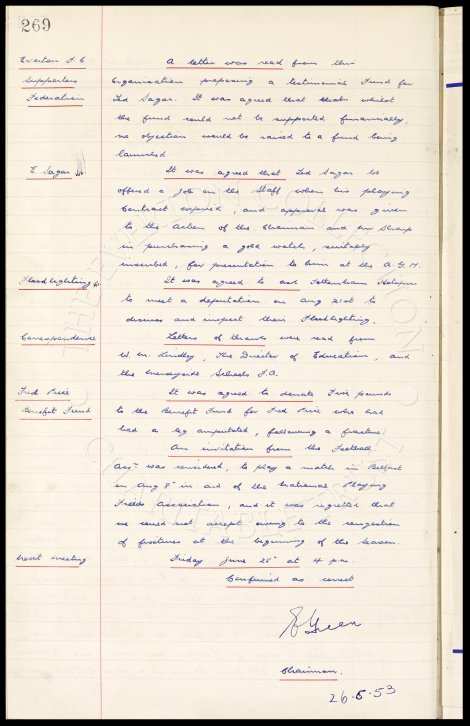 269
Everton F.C. A letter was read from this
Supporters organisation proposing a testimonial Fund for
Federation Ted Sagar. It was agreed that that whilst
the fund could not be supported financially,
no objection would be raised to a fund being
launched
E. Sagar It was agreed that Ted Sagar be
offered a job on the Staff when his playing
Contract expired, and approval was given
to the action of the Chairman and Mr Sharp
in purchasing a gold watch, suitably
inscribed, for presentation to him at the A.G.M.
Floodlighting It was agreed to ask Tottenham Hotspur
to meet a deputation on Aug 21st to
discuss and inspect their Floodlighting.
Correspondence Letters of thanks were read from
W. Mc. Lindley, The Director of Education, and
the Merseyside Schools F.A.
Fred Price It was agreed to donate Five pounds
Benefit Fund to the Benefit Fund for Fred Price who had
had a leg amputated, following a fracture
An invitation from the Football
Assn was received, to play a match in Belfast
on Aug 8th in aid of the National Playing
Fields Association, and it was regretted that
we could not accept owing to the congestion
of fixtures at the beginning of the season.
Next Meeting Friday June at 4 pm.
Confirmed as correct
E Green
Chairman.
26.6.53